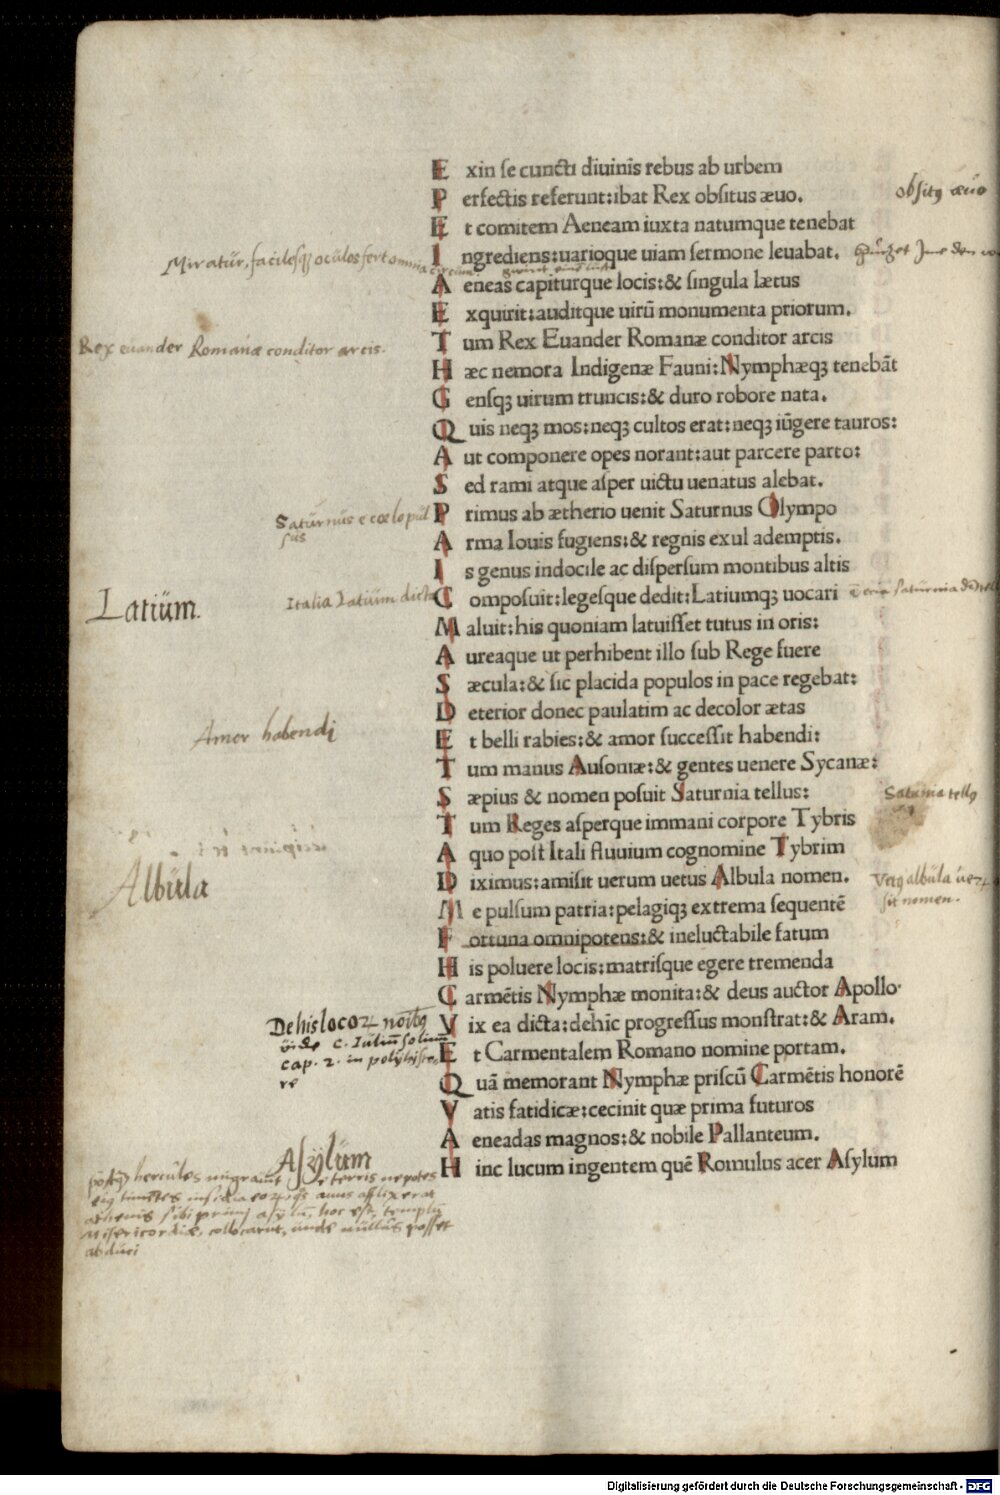 Exin se cuncti diuinis rebus ab urbem
Perfectis referunt:ibat Rex obsitus æuo.
obsitꝰ æuo
Et comitem Aeneam iuxta natumque tenebat
Ingrediens:uarioque uiam sermone leuabat.
Miratur, facilesqꝫ oculos fert omnia circum
Aeneas capiturque locis:& singula lætus
Exquirit:auditque uirū monumenta priorum.
Tum Rex Euander Romanæ conditor arcis
Rex euander Romanæ conditor arcis.
Hæc nemora Indigenæ Fauni:Nymphæqꝫ tenebāt
Gensqꝫ uirum truncis:& duro robore nata.
Quis neqꝫ mos:neqꝫ cultos erat:neqꝫ iūgere tauros:
Aut componere opes norant:aut parcere parto:
Sed rami atque asper uictu uenatus alebat.
Primus ab ætherio uenit Saturnus Olympo
Saturnus e cœlo pulsus
Arma Iouis fugiens:& regnis exul ademptis.
Is genus indocile ac dispersum montibus altis
Composuit:legesque dedit:Latiumqꝫ uocari
Italia Latium dicta
Latium.
Maluit:his quoniam latuisset tutus in oris:
Aureaque ut perhibent illo sub Rege fuere
Sæcula:& sic placida populos in pace regebat:
Deterior donec paulatim ac decolor ætas
Et belli rabies:& amor successit habendi:
Amor habendi
Tum manus Ausoniæ:& gentes uenere Sycanæ:
Sæpius & nomen posuit Saturnia tellus:
Saturnia tellꝰ
Tum Reges asperque immani corpore Tybris
A quo post Itali fluuium cognomine Tybrim
Diximus:amisit uerum uetus Albula nomen.
Albula
Me pulsum patria:pelagiqꝫ extrema sequentē
Fortuna omnipotens:& ineluctabile fatum
His poluere locis:matrisque egere tremenda
Carmētis Nymphæ monita:& deus auctor Apollo.
Vix ea dicta:dehīc progressus monstrat:& Aram.
De his locoꝝ noībꝰ
vide C. Iuliū solinū
cap. 2. in polyhisto
re
Et Carmentalem Romano nomine portam.
Quā memorant Nymphæ priscū Carmētis honorē
Vatis fatidicæ:cecinit quæ prima futuros
Aeneadas magnos:& nobile Pallanteum.
Hinc lucum ingentem quē Romulus acer Asylum
Asylum
hercules e terris nepotes
hoc est, templū
misericordiæ, collocarūt, unde nullus posset
abduci
Digitalisierung gefördert durch die Deutsche Forschungsgemeinschaft - DFG